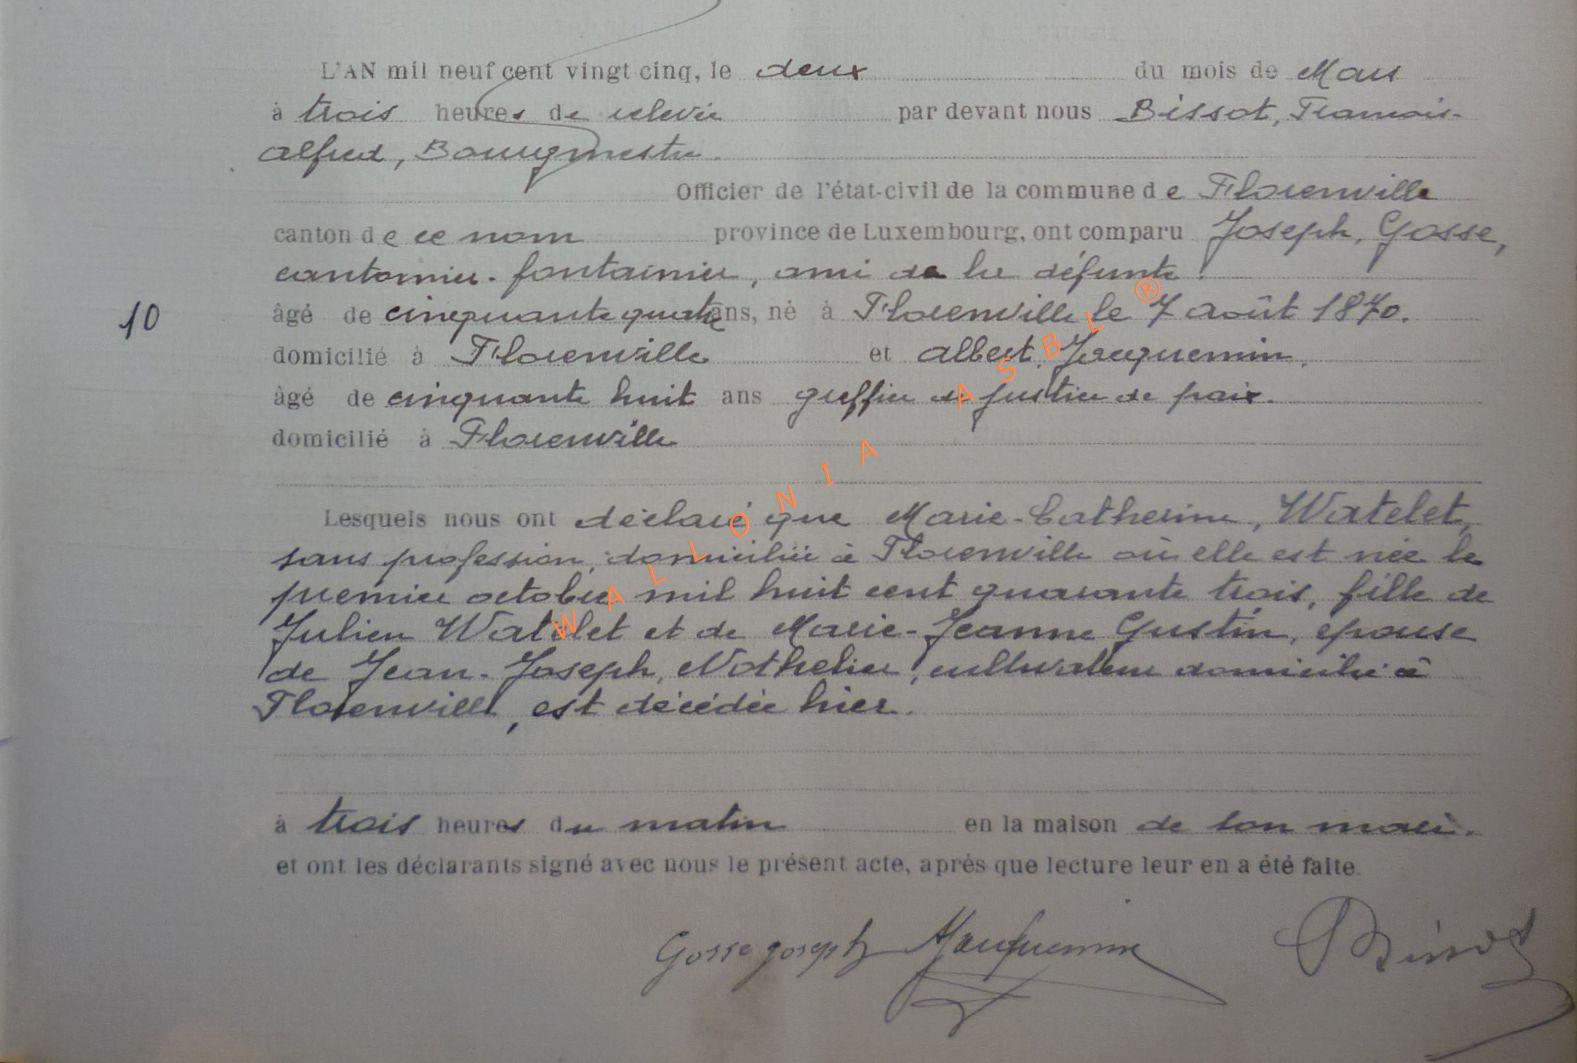 L'AN mil neuf cent vingt cinq, le deux du mois de Mars
à trois heures de relevée par devant nous Bissot, François-
Alfred, Bourgmestre.
Officier de l'état-civil de la commune de Florenville
canton de ce nom province de Luxembourg, ont comparu Joseph, Gosse,
cantonnier-fontainier, ami de la défunte.
âgé de cinquante quatre ans, né à Florenville le 7 août 1870.
domicilié à Florenville et Albert, Jacquemin,
10
âgé de cinquante huit ans greffier de justice de paix.
domicilié à Florenville
Lesquels nous ont déclaré que Marie-Catherine, Watelet,
sans profession, domiciliée à Florenville où elle est née le
premier octobre mil huit cent quarante trois, fille de
Julien Watelet et de Marie-Jeanne Gustin, épouse
de Jean-Joseph, Nothelier, cultivateur domicilié à
Florenville, est décédée hier.
à trois heures du matin en la maison de son mari.
et ont les déclarants signé avec nous le présent acte, après que lecture leur en a été faite
Gosse Joseph AJacquemin Bissot
WALLONIA ASBL ®